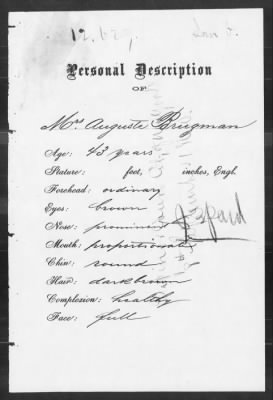 Personal Description
OF
Mrs Auguste Brugman
Age: 43 years
Stature: feet, inches, Engl.
Forehead: ordinary
Eyes: brown
Nose: prominent
Mouth: proportionate
Chin: round
Hair: darkbrown
Complexion: healthy
Face: full